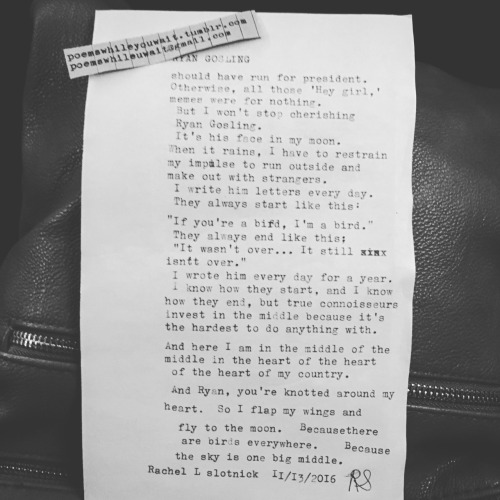 poemswhileyouwait.tumblr.com
poemswhileuwait@gmail.com
RYAN GOSLING
should have run for president.
Otherwise, all those 'Hey girl,'
memes were for nothing.
But I won't stop cherishing
Ryan Gosling.
It's his face in my moon.
When it rains, I have to restrain
my impulse to run outside and
make out with strangers.
I write him letters every day.
They always start like this:
"If you're a bird, I'm a bird."
They always end like this;
"It wasn't over... It still
isnt over."
I wrote him every day for a year.
I know how they start, and I know
how they end, but true connoisseurs
invest in the middle because it's
the hardest to do anything with.
And here I am in the middle of the
middle in the heart of the heart
of the heart of my country.
And Ryan, you're knotted around my
heart. So I flap my wings and
fly to the moon. Becausethere
are birds everywhere. Because
the sky is one big middle.
Rachel L slotnick 11/13/2016 RS